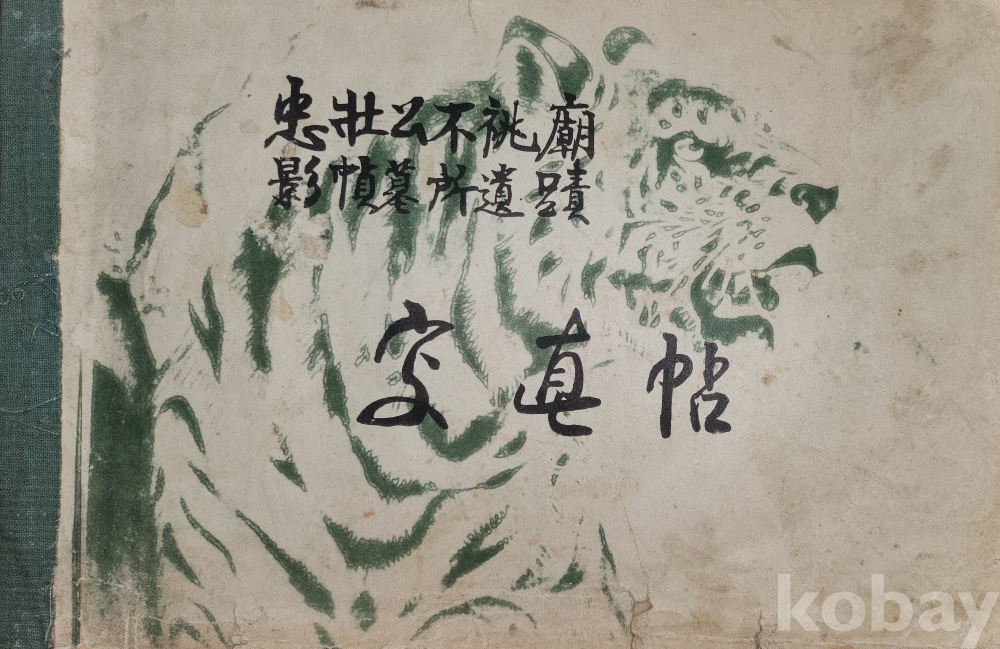 忠壯公不祧廟
影幀墓所遺蹟
写真帖
kobay